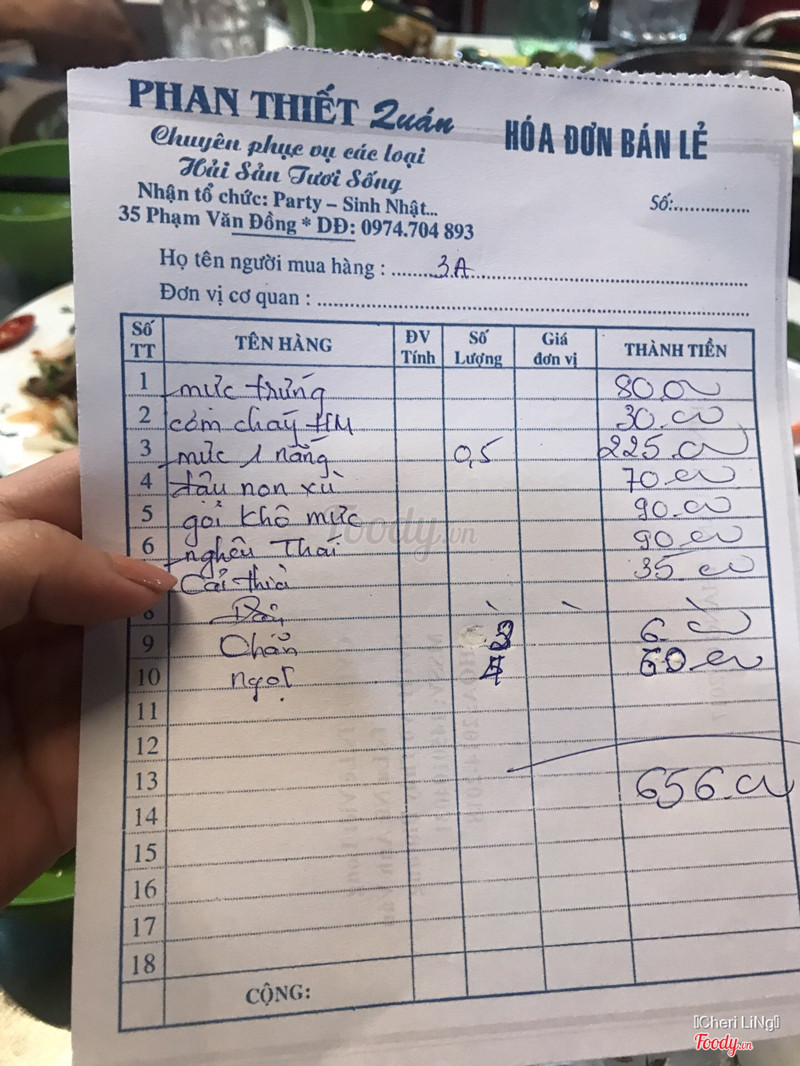 PHAN THIẾT Quán
HÓA ĐƠN BÁN LẺ
Chuyên phục vụ các loại
Hải Sản Tươi Sống
Nhận tổ chức: Party – Sinh Nhật...
Số:...............
35 Phạm Văn Đồng * DĐ: 0974.704 893
Họ tên người mua hàng : 3A
Đơn vị cơ quan :
Số TT TÊN HÀNG ĐV Tính Số Lượng Giá đơn vị THÀNH TIỀN
1 mực trứng 80
2 cơm cháy 30
3 mực 1 nắng 0,5 225
4 đậu non xù 70
5 gỏi khô mực 90
6 nghêu Thái 90
Cải thìa 35
8
9 3 6
10 ngọt 60
11
12
13 656
14
15
16
17
18
CỘNG:
Foody.vn
[Cheri LiNg]
Foody.vn